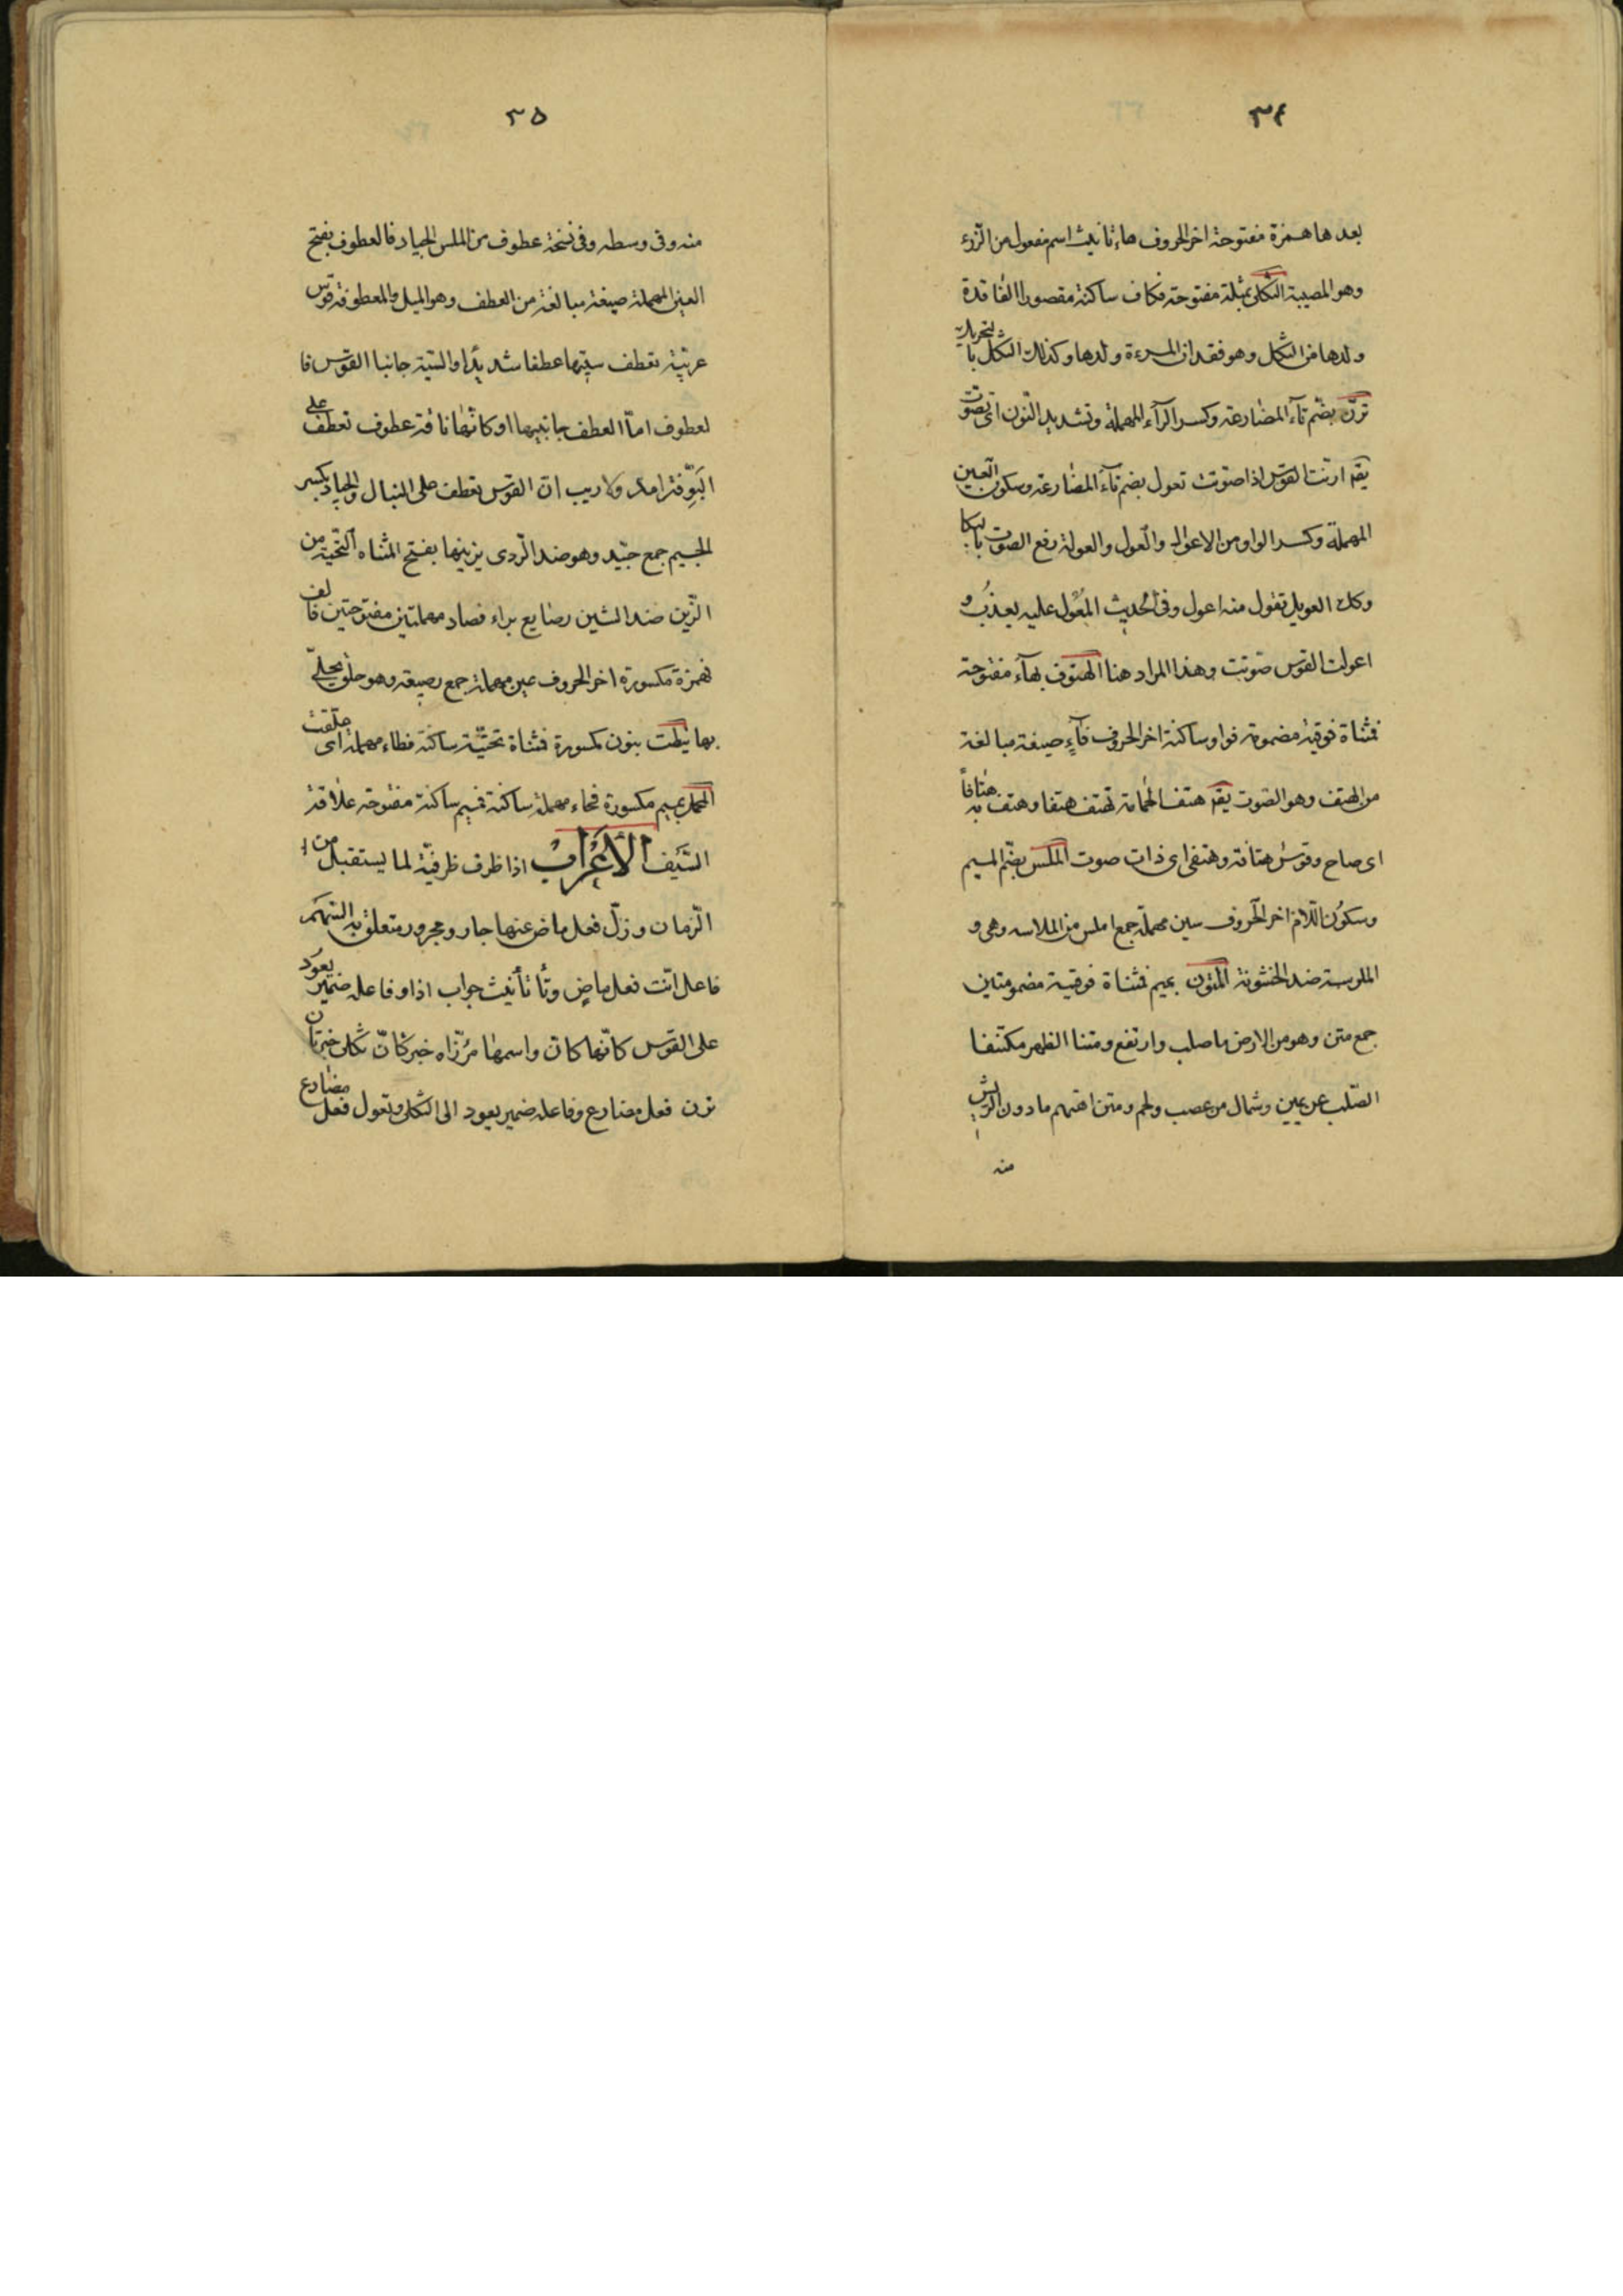 ٣٤
بعدها همزة مفتوحة اخر الحروف هاء تانيث اسم مفعول من الرّزء
وهو المصيبة الثكلى بمثلثة مفتوحة فكاف ساكنة مقصورا الفاقدة
ولدها من الثكل وهو فقدان المرءة ولدها وكذلك الثكل بالتحريك
ترنّ بضم تآء المضارعة وكسر الرآء المهملة وتشديد النّون اى تصوّت
يقٓ ارنّت القوس اذا صوتت تعول بضم تآء المضارعة وسكون العين
المهملة وكسر الواو من الاعوال والعول والعولة رفع الصوت بالبكا
وكك العويل تقول منه اعول وفى الحديث المعول عليه يعذب و
اعولت القوس صوتت وهذا المراد هنا الهتوف بهآء مفتوحة
فمثناة فوقية مضمومة فواو ساكنة اخر الحروف فآء صيغة مبالغة
من الهتف وهو الصّوت يقٓ هتف الحمامة تهتف هتفا وهتف به هتافاً
اى صاح وقوس هتافة وهتفى اى ذات صوت الملس بضم الميم
وسكون اللّام اخر الحروف سين مهملة جمع املس من الملاسه وهى و
الملوسة ضد الخشونة المتون بميم فمثناة فوقية مضمومتين
جمع متن وهو من الارض ما صلب وارتفع ومتنا الظهر مكتنفا
الصّلب عن يمين وشمال من عصب ولحم ومتن السهم ما دون الريش
منه
٣٥
منه وفى وسطه وفى نسخة عطوف من الملس الجياد فالعطوف بفتح
العين المهملة صيغة مبالغة من العطف وهو الميل والمعطوفة قوس
عربيّة تعطف سيتها عطفا شديدا والسّية جانبا القوس فا
لعطوف امّا العطف جانبيها او كانّها ناقة عطوف تعطف على
البوّ فترامه ولا ريب انّ القوس تعطف على النبال والجياد بكسر
الجيم جمع جيّد وهو ضد الرّدى يزينها بفتح المثناه التّحتية من
الزّين ضد الشين رصايع براء فصاد مهملتين مفتوحتين فالف
فهمزة مكسورة اخر الحروف عين مهملة جمع رصيعة وهو حلق يحلّى
بها نيطت بنون مكسورة فمثناة تحتيّة ساكنة فطاء مهملة اى علقت
المحمل بميم مكسورة فحاء مهملة ساكنة فميم ساكنة مفتوحة علاقة
السّيف الأعراب اذا ظرف ظرفيّة لما يستقبل من ا
الزّمان وزلّ فعل ماض عنها جار ومجرور متعلق به السّهم
فاعل انّت فعل ماضٍ وتا تأنيث جواب اذا وفاعله ضمير يعود
على القوس كانّها كانّ واسمها مرزاه خبر كانّ ثكلى خبر ثان
ترن فعل مضارع وفاعله ضمير يعود الى الثكلى وتعول فعل مضارع